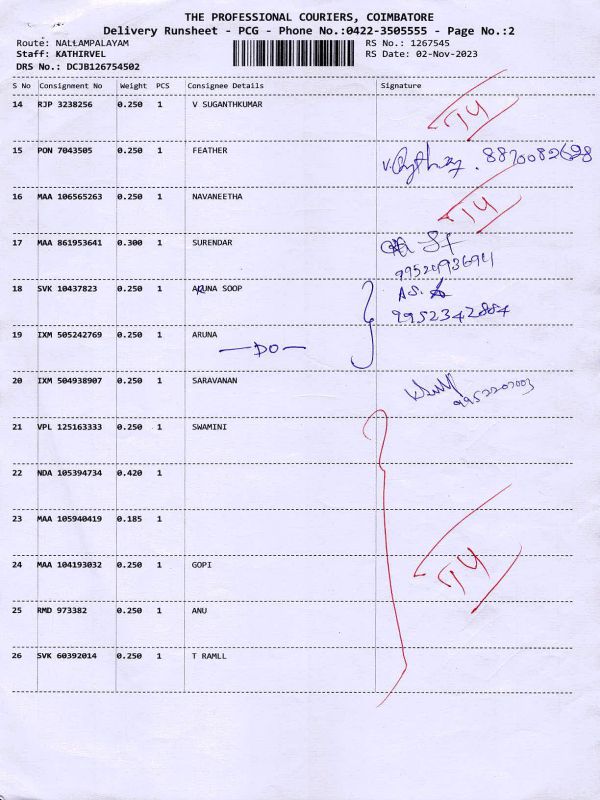 THE PROFESSIONAL COURIERS, COIMBATORE
Delivery Runsheet - PCG - Phone No.:0422-3505555 - Page No.:2
Route: NALLAMPALAYAM RS No.: 1267545
Staff: KATHIRVEL RS Date: 02-Nov-2023
DRS No.: DCJB126754502
S No Consignment No Weight PCS Consignee Details Signature
14 RJP 3238256 0.250 1 V SUGANTHKUMAR
15 PON 7043505 0.250 1 FEATHER 8870082698
16 MAA 106565263 0.250 1 NAVANEETHA
17 MAA 861953641 0.300 1 SURENDAR
9952493694
18 SVK 10437823 0.250 1 ARUNA SOOP A.S.
9952342884
19 IXM 505242769 0.250 1 ARUNA
—DO—
20 IXM 504938907 0.250 1 SARAVANAN
9952202003
21 VPL 125163333 0.250 1 SWAMINI
22 NDA 105394734 0.420 1
23 MAA 105940419 0.185 1
24 MAA 104193032 0.250 1 GOPI
25 RMD 973382 0.250 1 ANU
26 SVK 60392014 0.250 1 T RAMLL